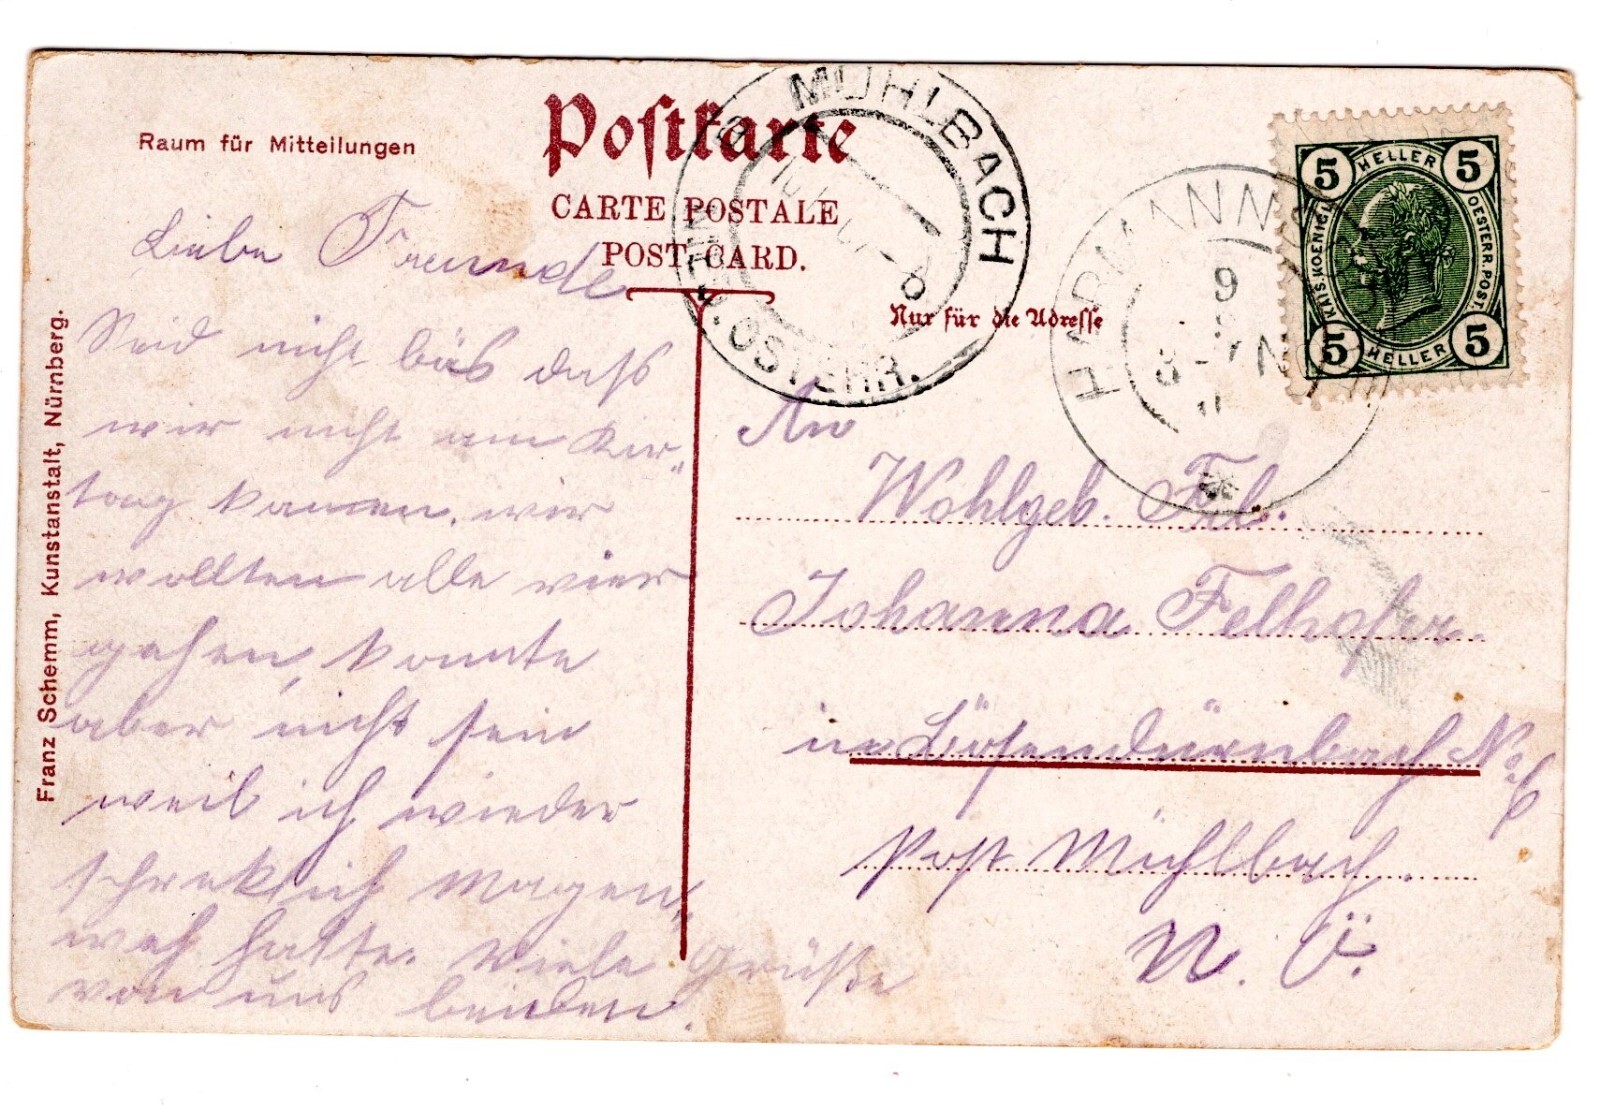 Raum für Mitteilungen
Postkarte
CARTE POSTALE
POST-CARD.
Nur für die Adresse
Franz Schemm, Kunstanstalt, Nürnberg.
MÜHLBACH
N. ÖSTERR.
HARMANNS
9
5 HELLER 5
KAIS. KOENIGL. OESTERR. POST
5 HELLER 5
Liebe Freunde
Seid nicht bös dass
wir nicht am Kir-
tag kamen. wir
wollten alle vier
gehen, konnte
aber nicht sein
weil ich wieder
schreklich Magen-
weh hatte. Viele Grüße
von uns beiden.
An
Wohlgeb. Frl.
Johanna Felhofer
in Bösendürnbach No. 6
Post Mühlbach.
N. Ö.